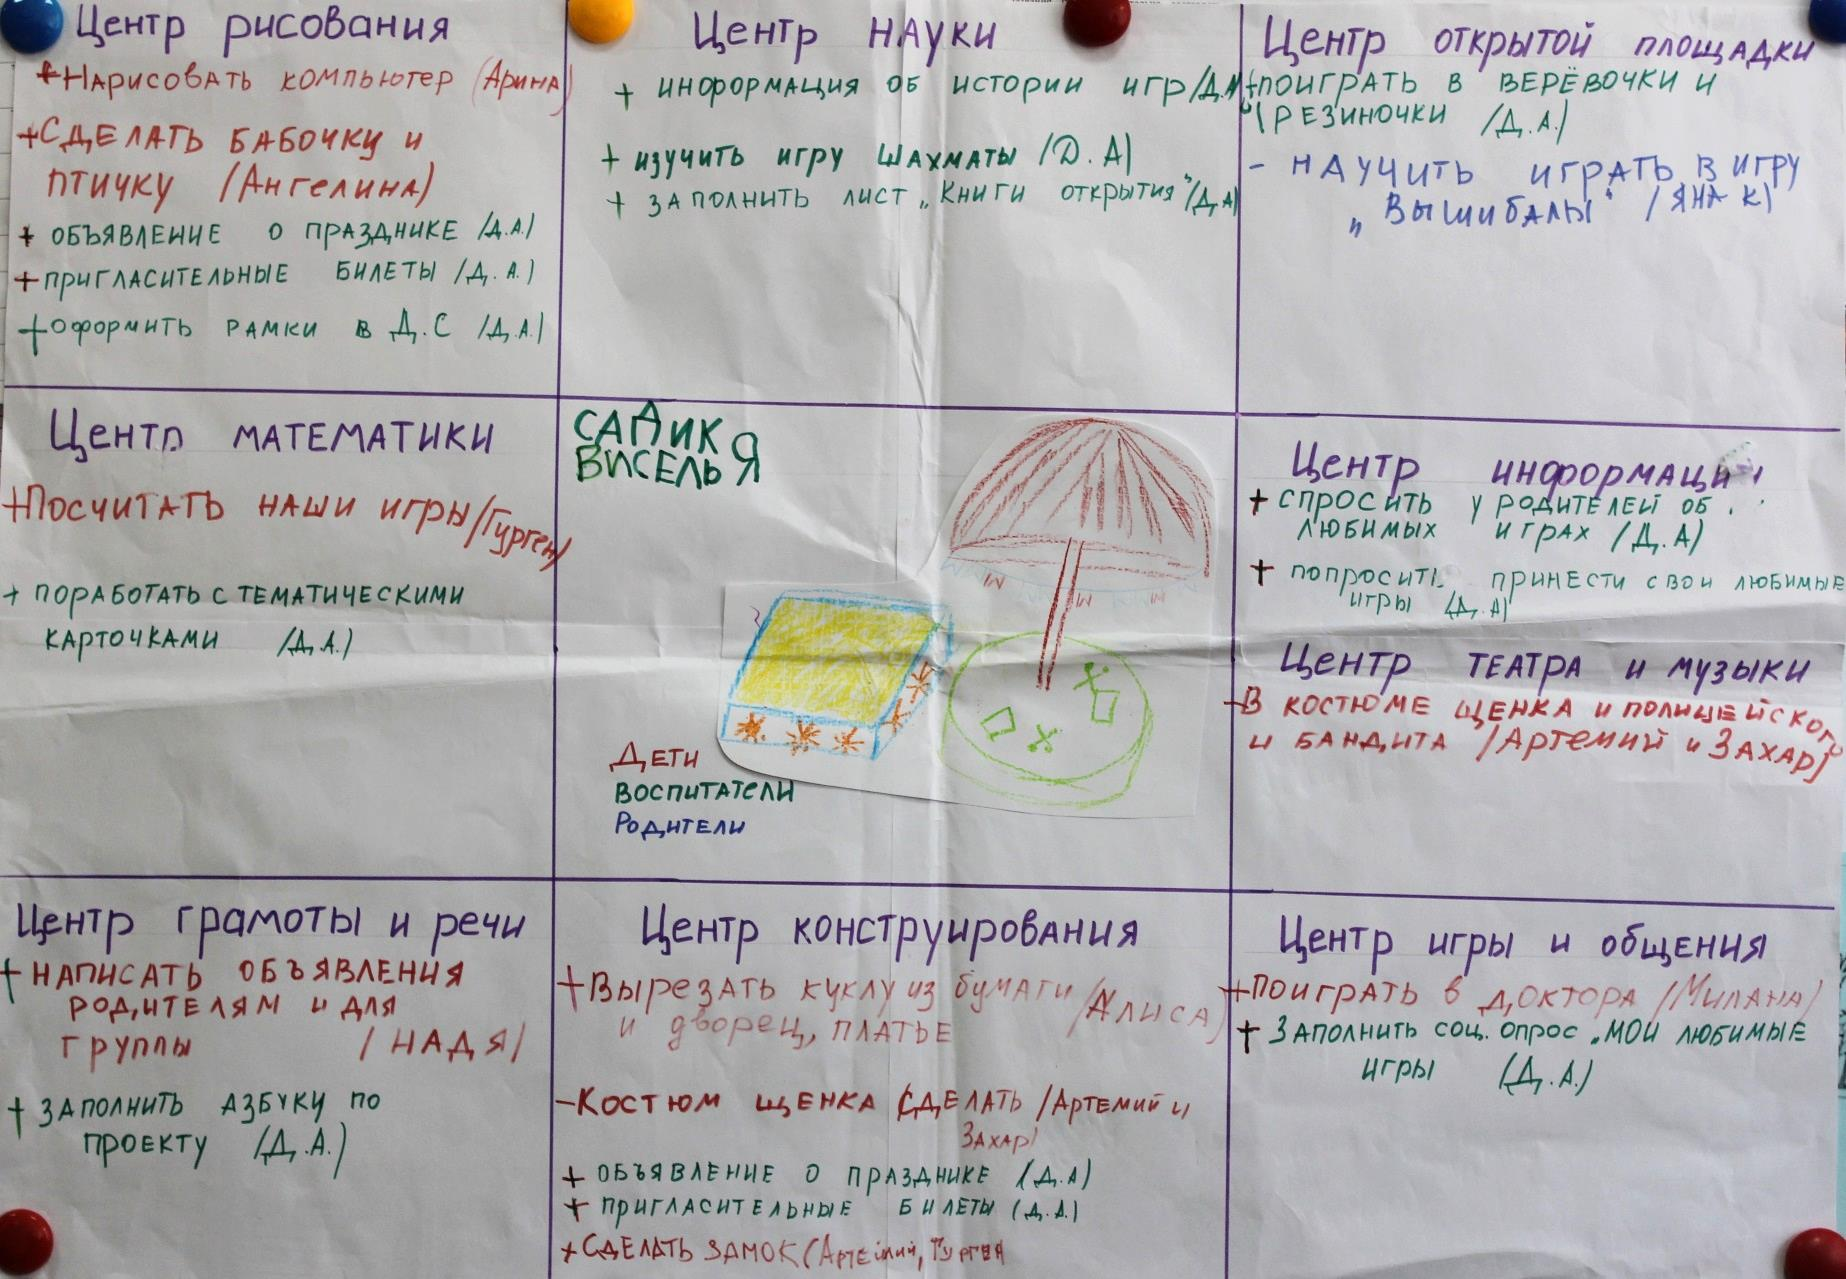 Центр рисования
+ Нарисовать компьютер (Арина)
+ Сделать бабочку и
птичку (Ангелина)
+ объявление о празднике (Д.А.)
+ пригласительные билеты (Д.А.)
+ оформить рамки в Д.С (Д.А.)
Центр науки
+ информация об истории игр (Д.А)
+ изучить игру шахматы (Д.А)
+ заполнить лист „Книги открытия" (Д.А)
Центр открытой площадки
+ поиграть в верёвочки и
резиночки (Д.А.)
- научить играть в игру
„Вышибалы" (Яна К)
Центр математики
+ Посчитать наши игры (Гурген)
+ поработать с тематическими
карточками (Д.А.)
САДИК
ВИСЕЛЬЯ
Дети
воспитатели
Родители
Центр информации
+ спросить у родителей об
любимых играх (Д.А)
+ попросить принести свои любимые
игры (Д.А)
Центр театра и музыки
- В костюме щенка и полицейского
и бандита (Артемий и Захар)
Центр грамоты и речи
+ написать объявления
родителям и для
группы (Надя)
+ заполнить азбуку по
проекту (Д.А.)
Центр конструирования
+ Вырезать куклу из бумаги (Алиса)
и дворец, платье
- Костюм щенка сделать (Артемий и
Захар)
+ объявление о празднике (Д.А)
+ пригласительные билеты (Д.А.)
+ Сделать замок (Артемий, Гурген
Центр игры и общения
+ Поиграть в доктора (Милана)
+ Заполнить соц. опрос „Мои любимые
игры (Д.А.)